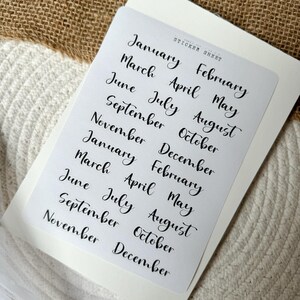 STICKER SHEET
January February
March April May
June July August
September October
November December
January February
March April May
June July August
September October
November December